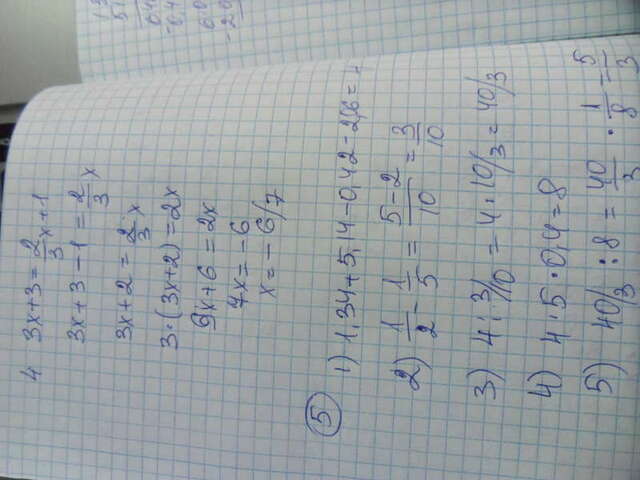 4 3x+3 = 2/3 x+1
3x+3-1 = 2/3 x
3x+2 = 2/3 x
3·(3x+2)=2x
9x+6 = 2x
7x = -6
x = - 6/7
5
1) 1,34+5,14-0,42-2,06= 4
2) 1/2 - 1/5 = 5-2/10 = 3/10
3) 4 : 3/10 = 4·10/3 = 40/3
4) 4·5·0,4=8
5) 40/3 : 8 = 40/3 · 1/8 = 5/3